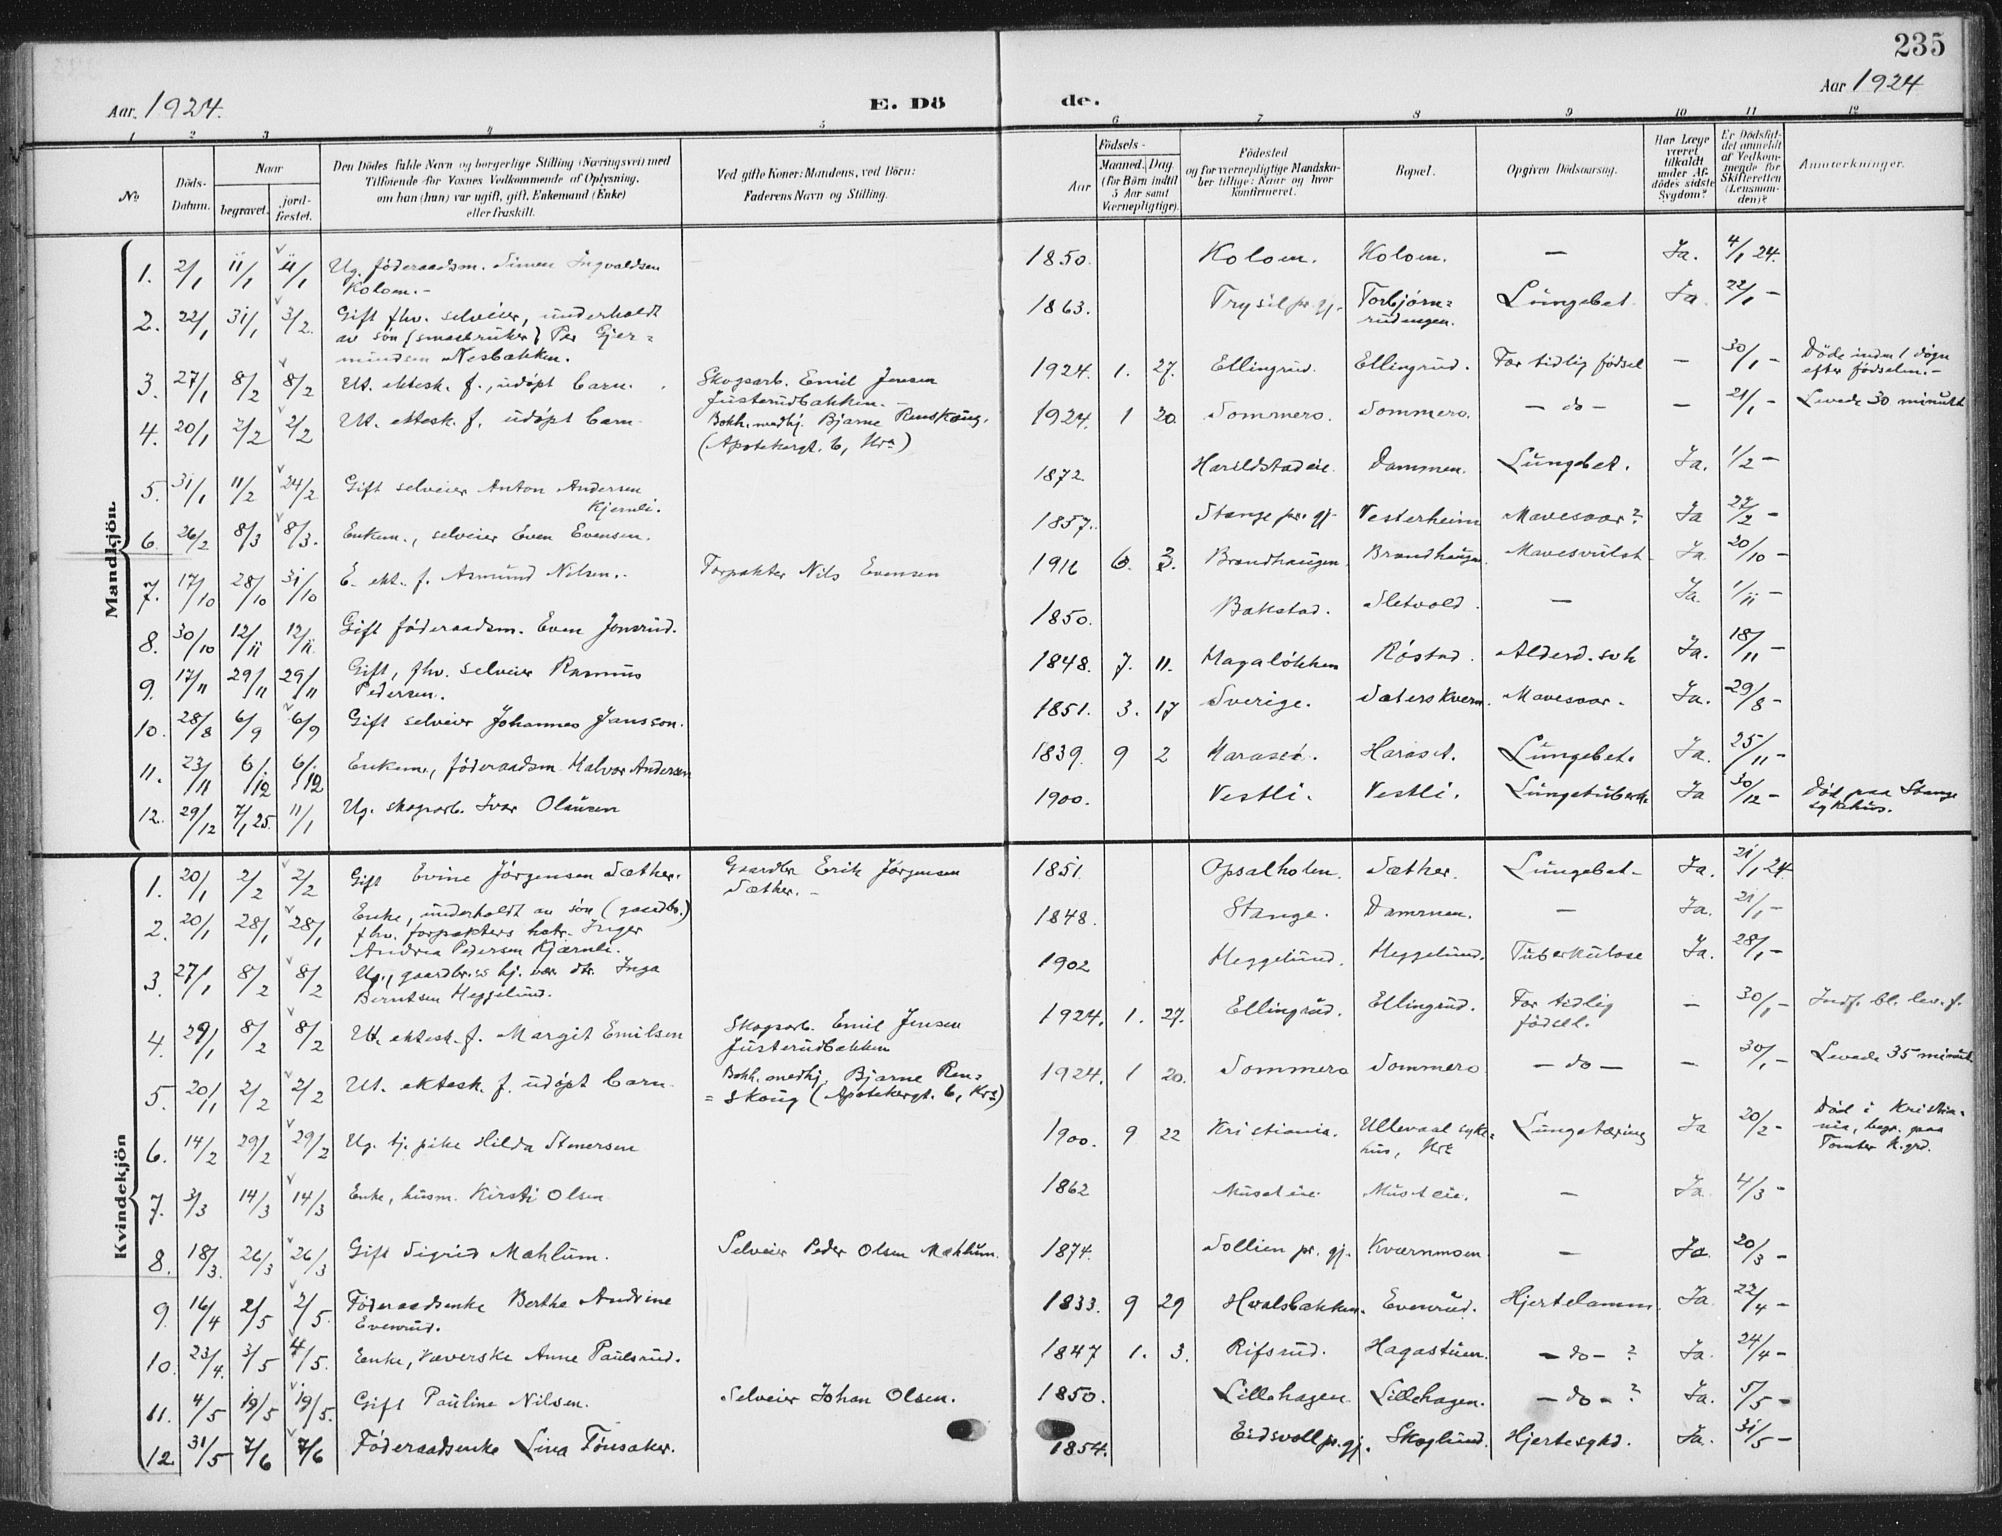 235
Aar. 1924.
E. Dö
de.
Aar 1924
1 2 3 4 5 6 7 8 9 10 11 12
No.
Döds-
Datum.
Naar
begravet.
jord-
fæstet.
Den Dödes fulde Navn og borgerlige Stilling (Næringsvei) med
Tilföiende for Voxnes Vedkommende af Oplysning,
om han (hun) var ugift, gift, Enkemand (Enke)
eller fraskilt.
Ved gifte Koner: Mandens, ved Börn:
Faderens Navn og Stilling.
Födsels-
Aar
Maaned. Dag.
(for Börn indtil
5 Aar samt
Værnepligtige).
Födested
og for værnepligtige Mandska-
ber tillige: Naar og hvor
konfirmeret.
Bopæl.
Opgiven Dödsaarsag.
Har Læge
været
tilkaldt
under Af-
dödes sidste
Sygdom?
Er Dödsfal-
det anmeldt
af Vedkom-
mende for
Skifteretten
(Lensman-
den)?
Anmerkninger.
Mandkjön.
1. 2/1 11/1 11/1 Ug. föderaadsm. Simen Ingvaldsen
Kolom.- 1850. Kolom. Kolom. — Ja. 4/1 24.
2. 22/1 31/1 3/2. Gift fhv. selveier, underholdt
av sön (smaabruker) Per Gjer=
mundsen Nesbakken. 1863. Trysil pr. gj. Torbjörn=
rudengen. Lungebet. Ja. 22/1 -
3. 27/1 8/2 8/2 Ut. ektesk. f., udöpt barn. Skogsarb. Emil Jensen
Justerudbakken.- 1924. 1. 27. Ellingrud. Ellingrud. For tidlig födsel — 30/1 - Döde inden 1 dögn
efter födselen.-
4. 20/1 2/2 2/2 Ut. ektesk. f. udöpt barn Bokh. medhj. Bjarne Renskoug.
(Apotekergt. 6, Kra) 1924. 1 20. Sommero. Sommero. — do — — 21/1 - Levede 30 minutt
5. 31/1 11/2 24/2 Gift selveier Anton Andersen
Kjernli. 1872. Harildstadeie. Dammen. Lungebet. Ja. 1/2 -
6. 26/2 8/3 8/3. Enkem., selveier Even Evensen. 1857. Stange pr. gj. Vesterheim Mavesaar? Ja 27/2 -
7. 17/10 28/10 31/10 E. ekt. f. Asmund Nilsen. Forpakter Nils Evensen 1916 6. 3. Brandhaugen. Brandhaugen. Mavesvulst Ja. 20/10 -
8. 30/10 12/11 12/11. Gift föderaadsm. Even Jonsrud. 1850. Bakstad. Sletvold. — Ja. 1/11 -
9. 17/11 29/11 29/11 Gift, fhv. selveier Rasmus
Pedersen. 1848. 7. 11. Hagalökken Röstad. Alderd.svk Ja. 18/11 -
10. 28/8 6/9 6/9 Gift selveier Johannes Jansson. 1851. 3. 17 Sverige. Sæterskvern. Mavesaar. Ja. 29/8 -
11. 23/11 6/12 6/12 Enkem., föderaadsm. Halvor Andersen 1839. 9 2 Haraset. Haraset. Lungebet. Ja. 25/11 -
12. 29/12 7/1 25. 11/1 Ug. skogsarb. Ivar Olausen 1900. Vestli. Vestli. Lungetuberk. Ja 30/12 - Död paa Stange
sykehus.
Kvindekjön
1. 20/1 2/2 2/2 Gift Evine Jörgensen Sæther. Gaardbr. Erik Jörgensen
Sæther.- 1851. Opsalholen. Sæther. Lungebet- Ja. 21/1 24
2. 20/1 28/1 28/1 Enke, underholdt av sön (gaardbr.)
fhv. forpakters hstr. Inger
Andrea Pedersen Kjærnli. 1848. Stange. Dammen. — Ja. 21/1 -
3. 27/1 8/2 8/2 Ug., gaardbr.s hj. vær. dtr. Inga
Berntsen Heggelund. 1902 Heggelund. Heggelund. Tuberkulose Ja. 28/1 -
4. 29/1 8/2 8/2 Ut. ektesk. f. Margit Emilsen Skogsarb. Emil Jensen
Justerudbakken 1924. 1. 27. Ellingrud. Ellingrud. For tidlig
födsel. — 30/1 - Indf. bl. lev. f.
5. 20/1 2/2 2/2 Ut. ektesk. f. udöpt barn. Bokh. medhj. Bjarne Ren=
=skoug (Apotekergt. 6, Kra) 1924. 1 20. Sommero Sommero — do — — 30/1 - Levede 35 minut
6. 14/2 29/2 29/2 Ug. tj. pike Hilda Stenersen 1900. 9 22 Kristiania. Ullevaal syke=
hus, Kra Lungetæring Ja 20/2 - Död i Kristia=
nia, begr. paa
Tomter k.grd.
7. 3/3 14/3 14/3 Enke, husm. Kirsti Olsen 1862 Musteie Musteie. — Ja. 4/3 -
8. 18/3. 26/3 26/3 Gift Sigrid Mæhlum. Selveier Peder Olsen Mæhlum. 1874. Sollien pr. gj. Kværnmoen — Ja. 20/3 -
9. 16/4 2/5 2/5. Föderaadsenke Berthe Andrine
Evenrud. 1833. 9 29 Hvalsbakken. Evenrud. Hjertelamm. Ja. 22/4 -
10. 23/4. 3/5 4/5. Enke, væverske Anne Paulsrud. 1847 1. 3. Rifsrud. Hagastuen. — do — ? Ja. 24/4 -
11. 4/5 19/5 19/5. Gift Pauline Nilsen. Selveier Johan Olsen. 1850. Lillehagen. Lillehagen. — do — ? Ja. 5/5 -
12. 31/5 7/6 7/6 Föderaadsenke Lina Tönsaker. 1854. Eidsvoll pr. gj. Skoglund. Hjertesykd. Ja. 31/5 -